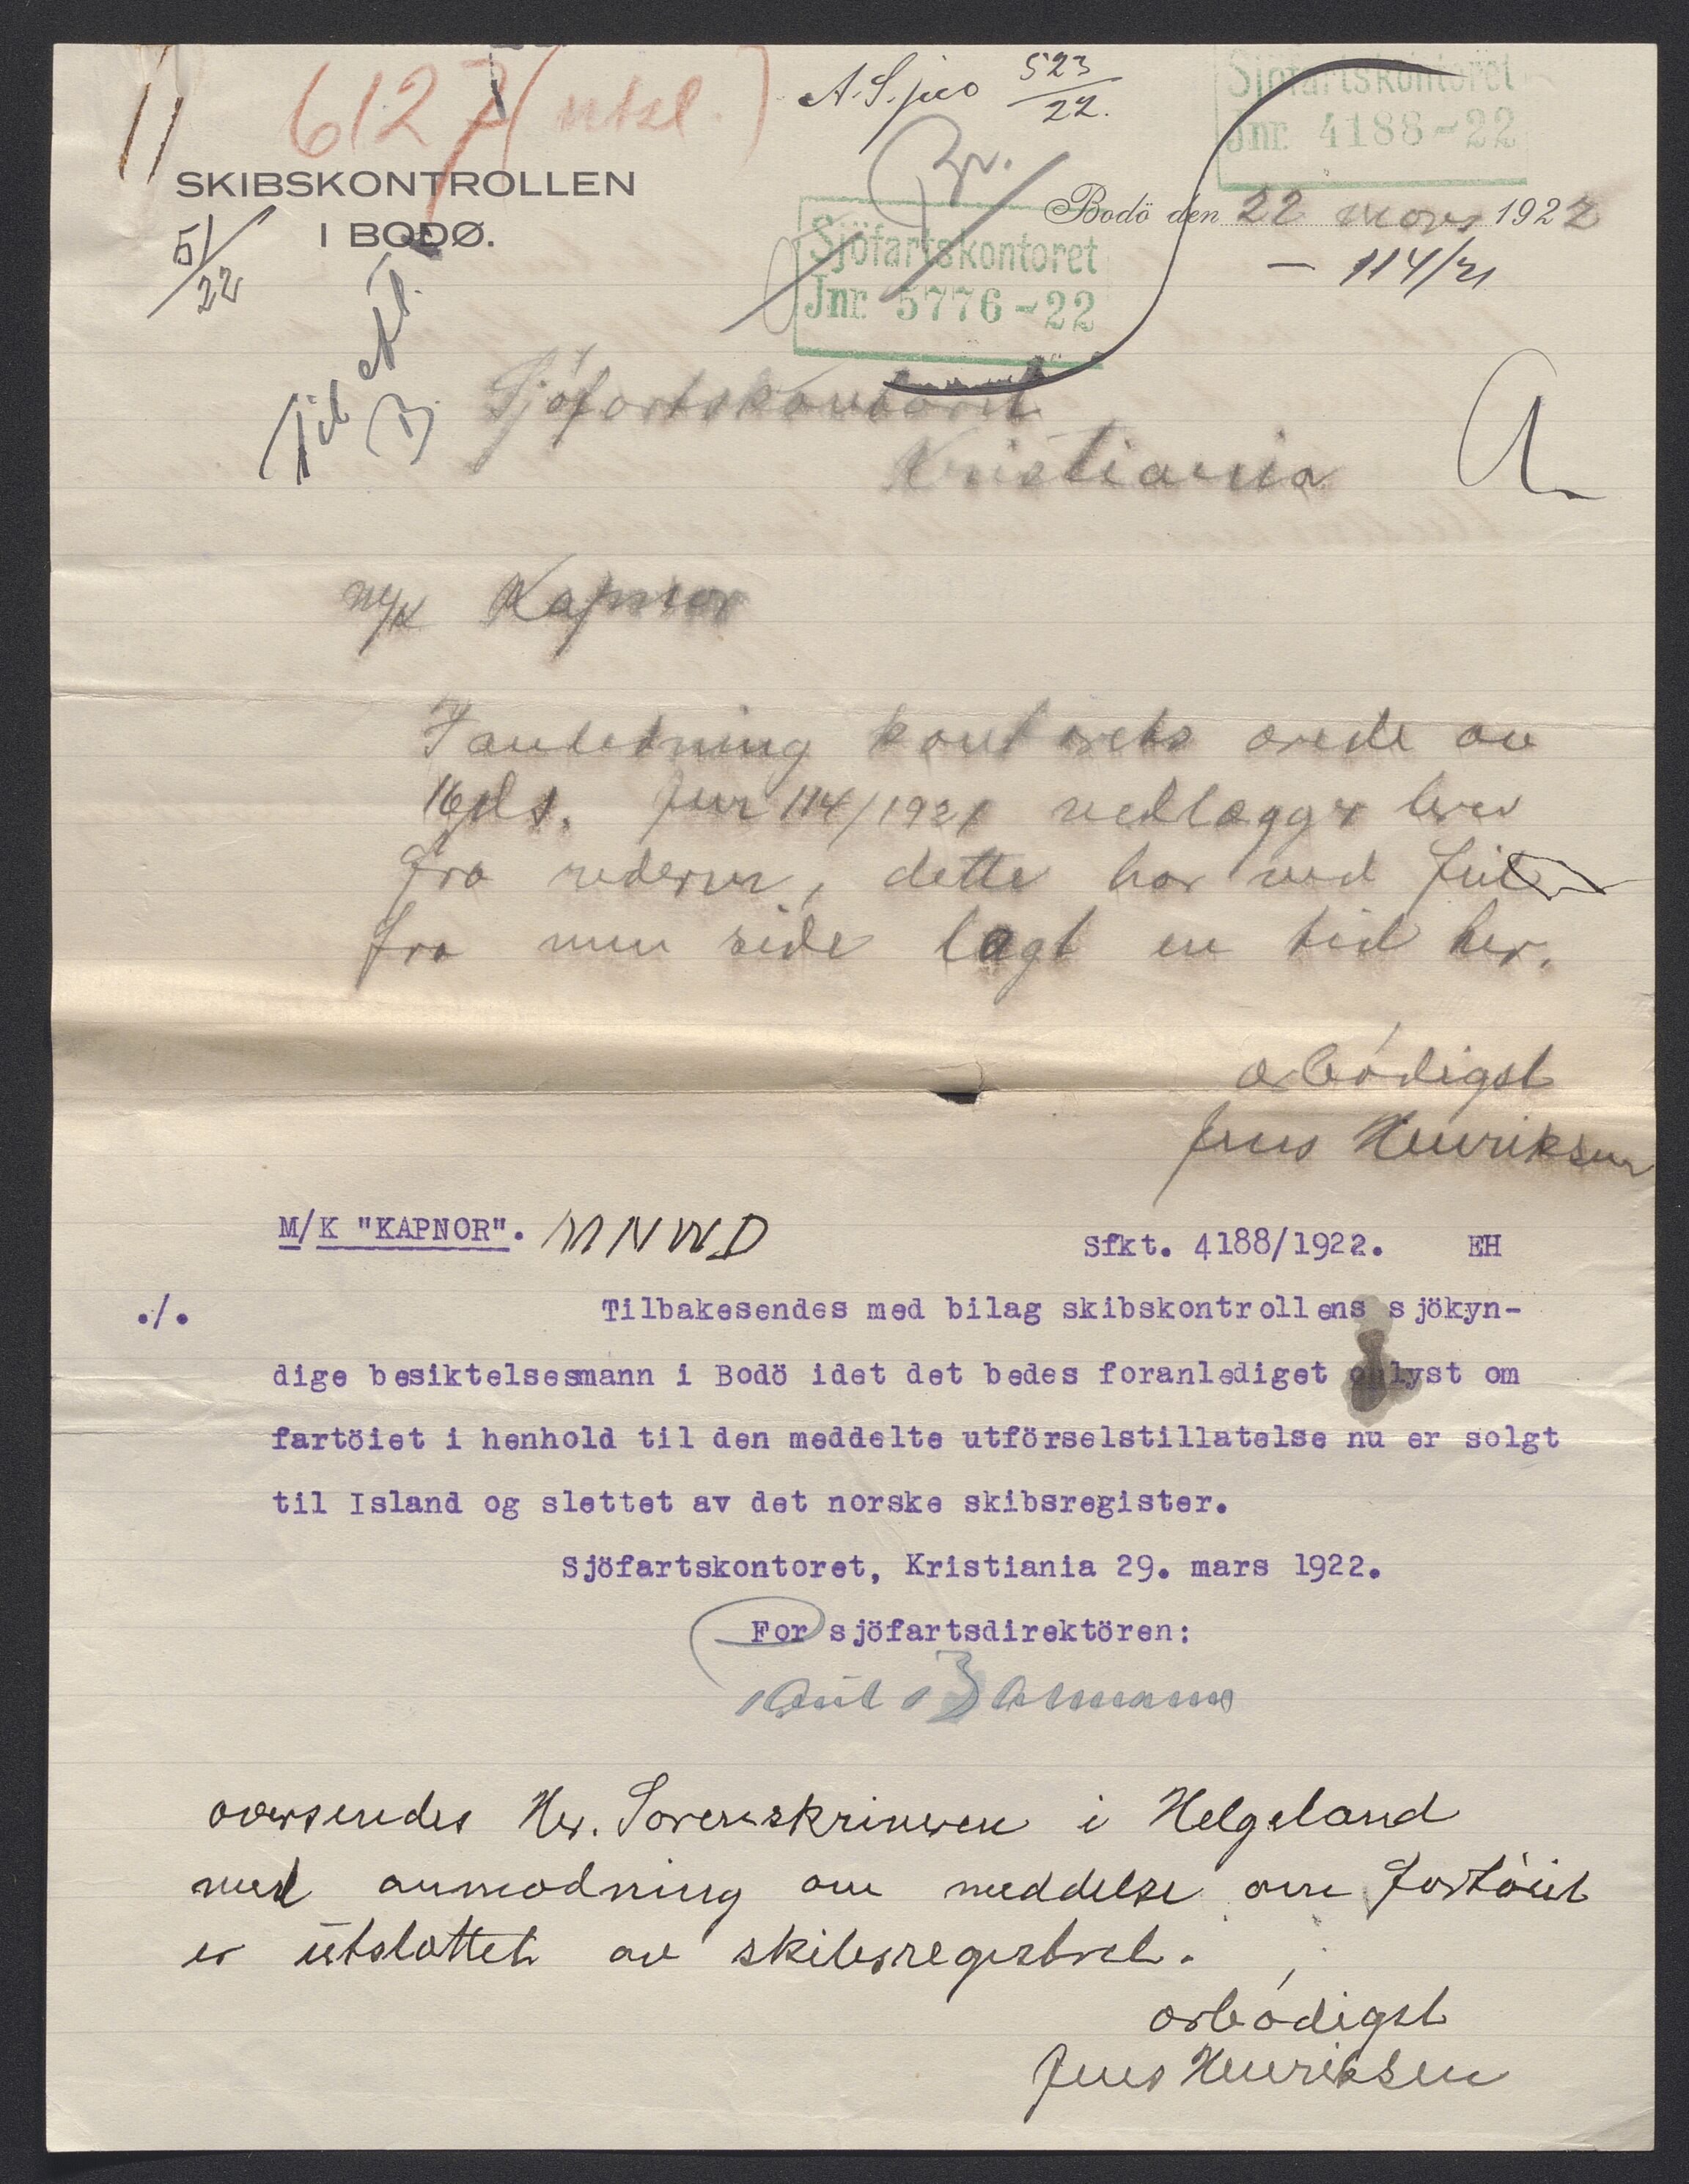 6127 (utsl.)
A.S. jno 523/22.
Sjöfartskontoret
Jnr. 4188-22
SKIBSKONTROLLEN
I BODØ.
5/22
Br.
Bodö den 22 mars 1922
- 114/21
Sjöfartskontoret
Jnr. 5776-22
Til ekt.
B.
Sjöfartskontoret
Kristiania
A
M/K Kapnor
I anledning kontorets ordre av
16 ds. Jnr 114/1921 vedlægges brev
fra rederen, dette har ved feil
fra min side lagt en tid her.
ærbödigst
Jens Henriksen
M/K "KAPNOR". MNWD
Sfkt. 4188/1922. EH
./. Tilbakesendes med bilag skibskontrollens sjökyn-
dige besiktelsesmann i Bodö idet det bedes foranlediget oplyst om
fartöiet i henhold til den meddelte utförselstillatelse nu er solgt
til Island og slettet av det norske skibsregister.
Sjöfartskontoret, Kristiania 29. mars 1922.
For sjöfartsdirektören:
oversendes Hr. Sorenskriveren i Helgeland
med anmodning om meddelse om fartöiet
er utslettet av skibsregistret.
ærbödigst
Jens Henriksen